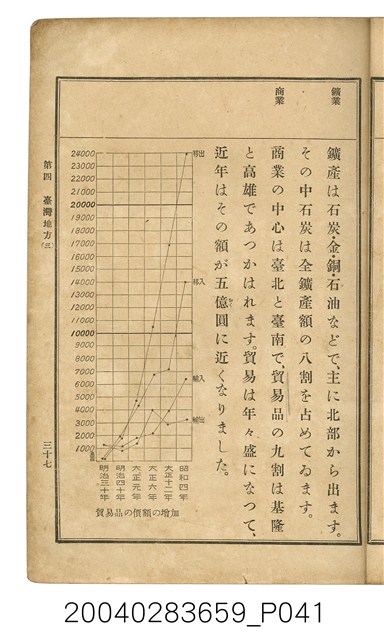 鑛業
鑛產は石炭・金・銅・石油などで、主に北部から出ます。
その中石炭は全鑛產額の八割を占めてゐます。
商業
商業の中心は臺北と臺南で、貿易品の九割は基隆
と高雄であつかはれます。貿易は年々盛になつて、
近年はその額が五億圓に近くなりました。
24000
23000
22000
21000
20000
19000
18000
17000
16000
15000
14000
13000
12000
11000
10000
9000
8000
7000
6000
5000
4000
3000
2000
1000
移出
移入
輸入
輸出
明治三十年
明治四十年
大正元年
大正六年
大正十二年
昭和四年
貿易品の價額の增加
第四 臺灣地方(三)
三十七
20040283659_P041